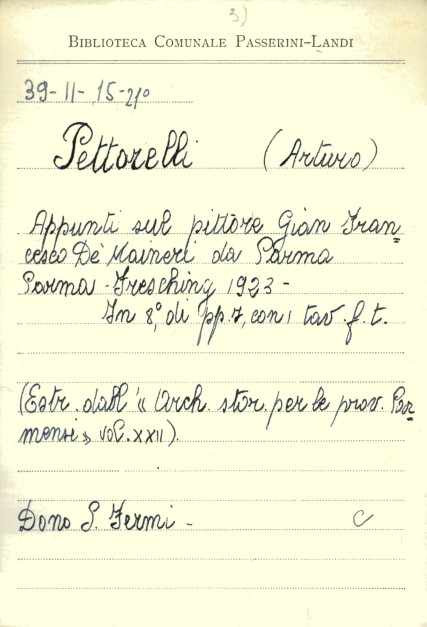 3)
BIBLIOTECA COMUNALE PASSERINI-LANDI
39-II-15-21º
Pettorelli (Arturo)
Appunti sul pittore Gian Fran-
cesco De' Maineri da Parma
Parma - Fresching 1923 -
In 8º, di pp. 7, con 1 tav. f. t.
(Estr. dall'« Arch. stor. per le prov. Par-
mensi » vol. XXII).
Dono S. Fermi - C